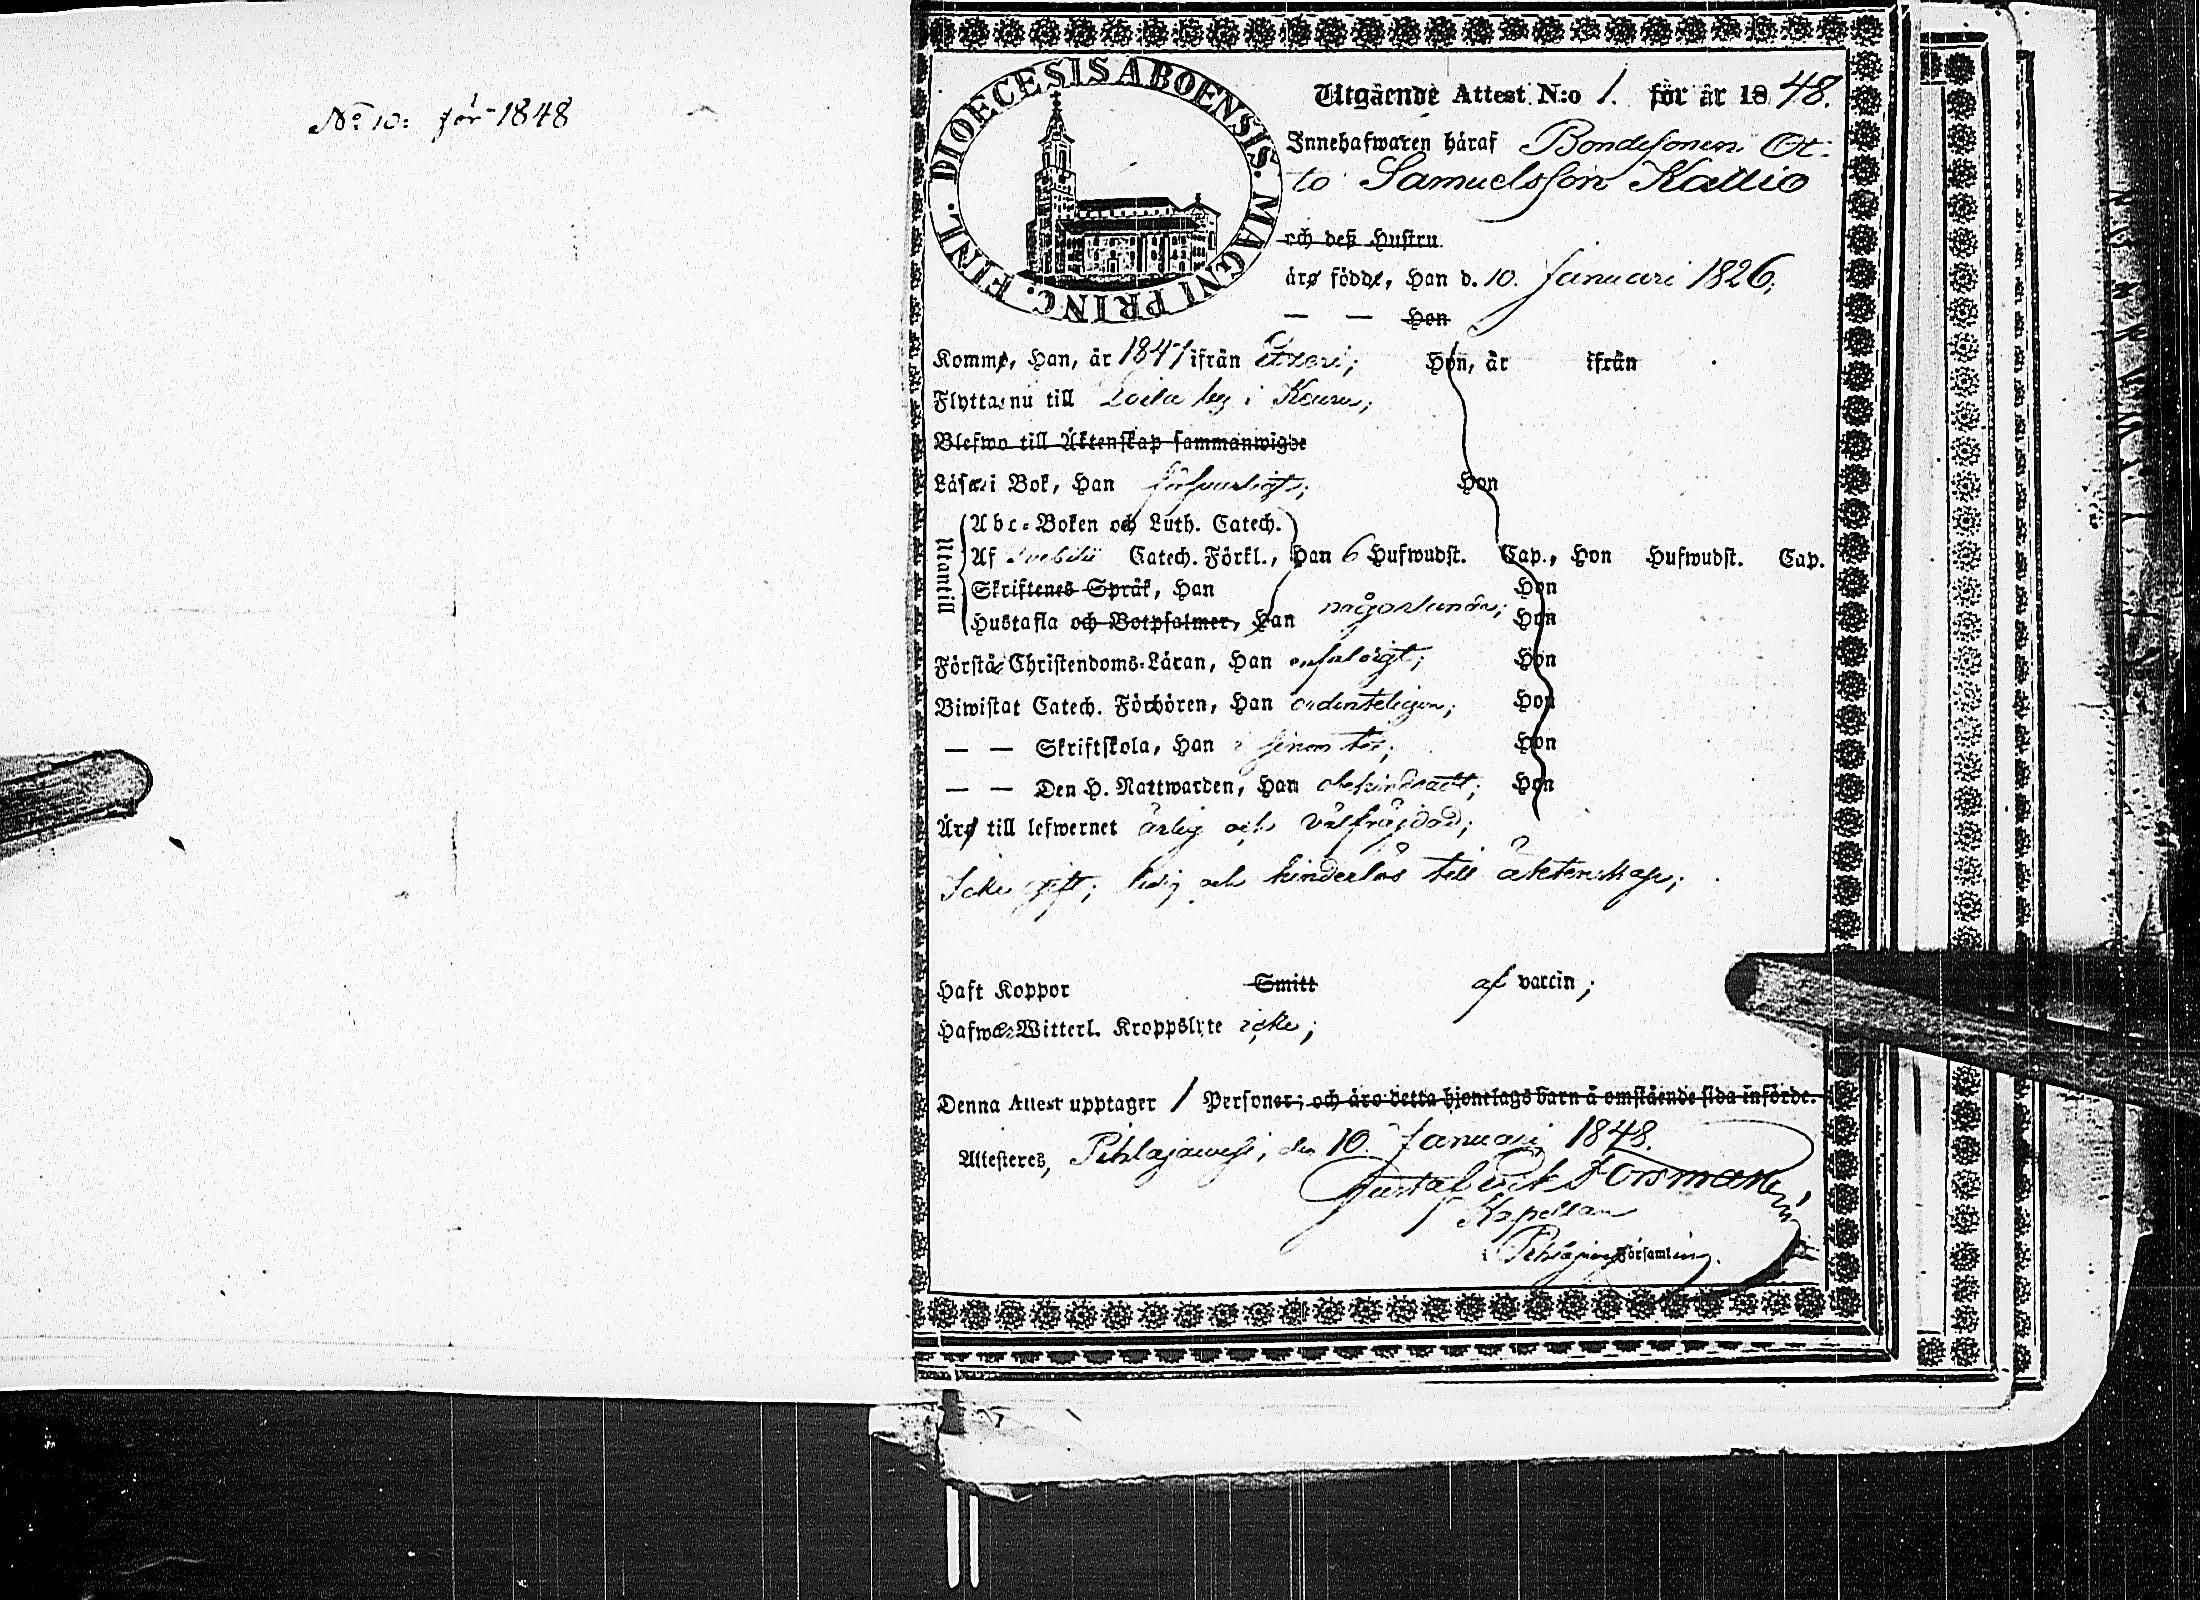 No 10: för 1848
DIOECESIS ABOENSIS. MAGNI PRINC. FINL.
Utgående Attest N:o 1. för år 1848.
Innehafwaren häraf Bondesonen Ot-
to Samuelsson Kallio
och deß Hustru
äro födde, Han d. 10. Januari 1826;
— — Hon
Komme, Han, år 1847 ifrån Etseri; Hon, år ifrån
Flytta nu till Loila by i Keuru;
Blefwo till Äktenskap sammanwigde
Läsa i Bok, Han försvarligt; Hon
Utantill
Abc-Boken och Luth. Catech.
Af Svebilii Catech. Förkl., Han 6 Hufwudst. Cap., Hon Hufwudst. Cap.
Skriftenes Språk, Han Hon
Hustafla och Botpsalmer, Han någorlunda; Hon
Förstå Christendoms-Läran, Han enfaldigt; Hon
Biwistat Catech. Förhören, Han ordenteligen; Hon
— — Skriftskola, Han i sinom tid; Hon
— — Den H. Nattwarden, Han obehindradt; Hon
Äro till lefwernet ärlig och välfräjdad;
Icke gift; ledig och hinderlös till äktenskap;
Haft Koppor Smitt af vaccin;
Hafwa Witterl. Kroppslyte icke;
Denna Attest upptager 1 Personer; och äro detta hjonelags barn å omstående sida införde.
Attesteres, Pihlajawesi, den 10. Januari 1848.
Gustaf Forsman,
Kapellan
i Pihlajaves Församling.